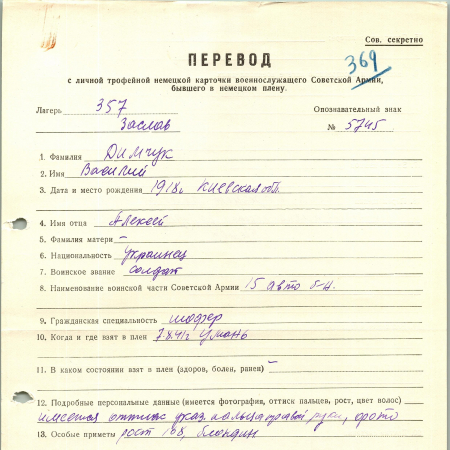 Сов. секретно
ПЕРЕВОД
369
с личной трофейной немецкой карточки военнослужащего Советской Армии,
бывшего в немецком плену.
Лагерь 357
Заслав
Опознавательный знак
№ 5745
1. Фамилия Димчук
2. Имя Василий
3. Дата и место рождения 1918г Киевская обл.
4. Имя отца Алексей
5. Фамилия матери –
6. Национальность украинец
7. Воинское звание солдат
8. Наименование воинской части Советской Армии 15 авто б-н.
9. Гражданская специальность шофер
10. Когда и где взят в плен 7.8.41г Умань
11. В каком состоянии взят в плен (здоров, болен, ранен) –
12. Подробные персональные данные (имеется фотография, оттиск пальцев, рост, цвет волос)
имеется оттиск указ. пальца правой руки, фото
13. Особые приметы рост 168, блондин